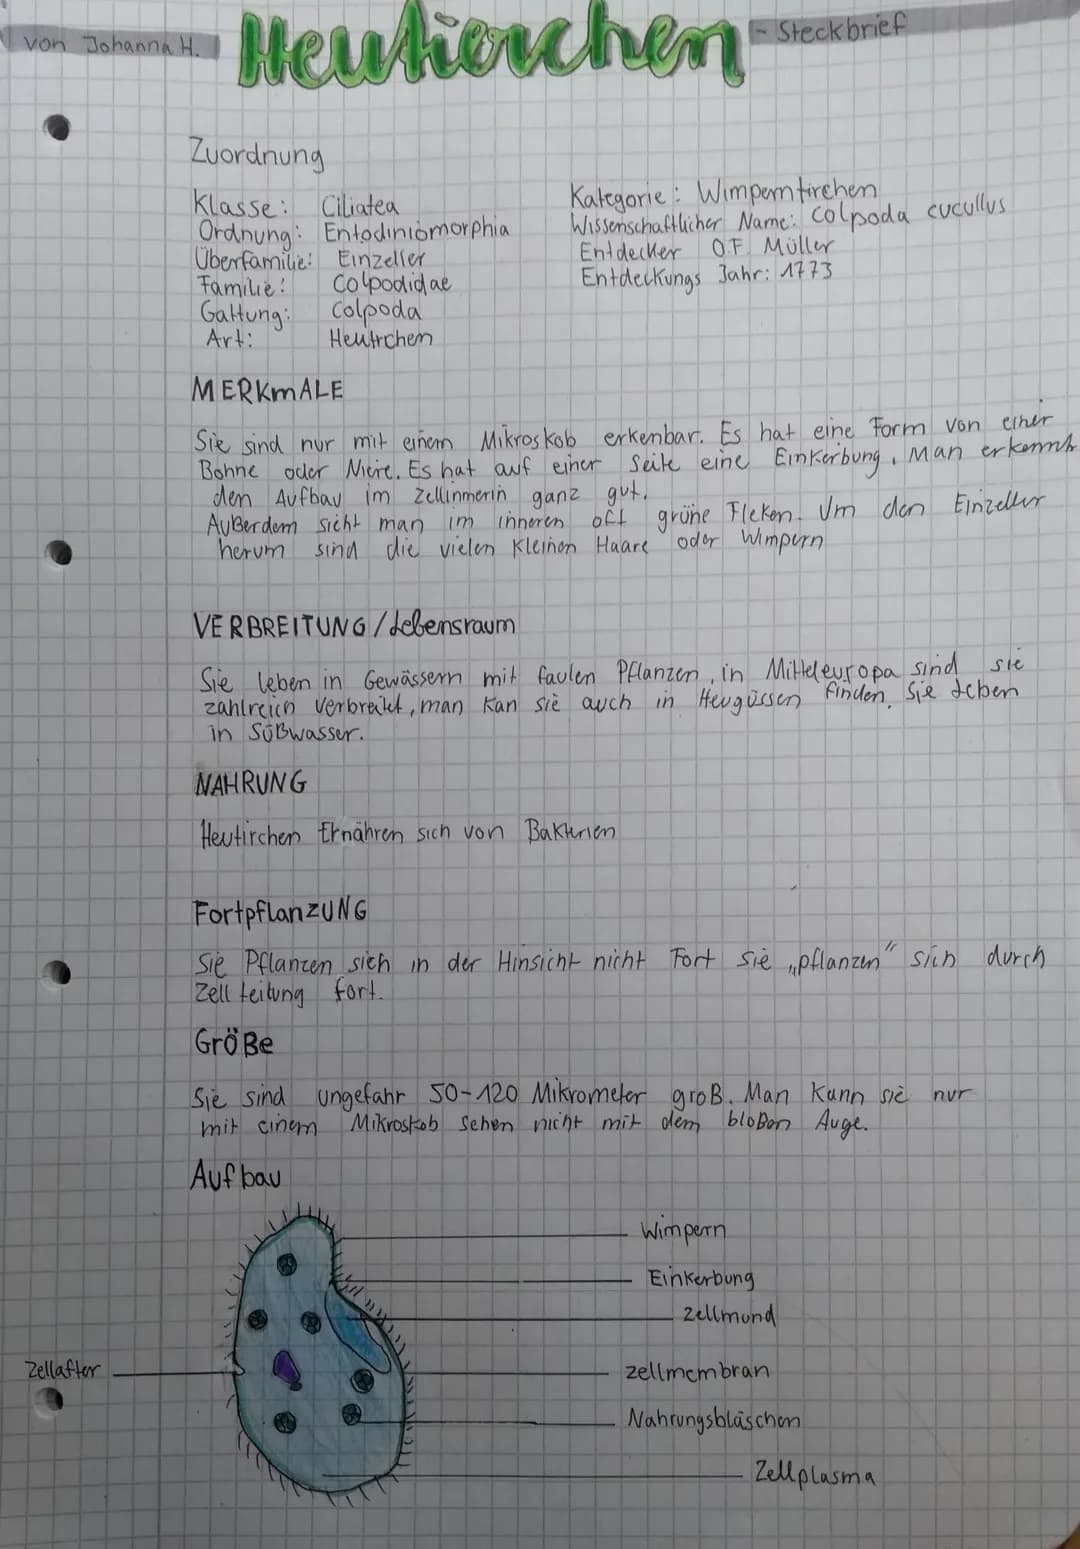 von Johanna H.
Heutierchen
- Steckbrief
Zuordnung
Klasse: Ciliatea
Ordnung: Entodiniomorphia
Überfamilie: Einzeller
Familie: Colpodidae
Gattung: Colpoda
Art: Heutrchen
Kategorie: Wimperntirchen
Wissenschaftlicher Name: Colpoda cucullus
Entdecker O.F. Müller
Entdeckungs Jahr: 1773
MERKMALE
Sie sind nur mit einem Mikroskob erkenbar. Es hat eine Form von einer
Bohne oder Niere. Es hat auf einer Seite eine Einkerbung. Man erkennt
den Aufbau im Zellinnerin ganz gut.
Außerdem sieht man im inneren oft grüne Fleken. Um den Einzeller
herum sind die vielen kleinen Haare oder Wimpern
VERBREITUNG/Lebensraum
Sie leben in Gewässern mit faulen Pflanzen, in Mitteleuropa sind sie
zahlreich verbreitet, man kan sie auch in Heugüssen finden. Sie Leben
in Süßwasser.
NAHRUNG
Heutirchen Ernähren sich von Bakterien
FortpflanZUNG
Sie Pflanzen sich in der Hinsicht nicht Fort sie „pflanzen" sich durch
Zell teilung fort.
Größe
Sie sind ungefähr 50-120 Mikrometer groß. Man kann sie nur
mit einem Mikroskob sehen nicht mit dem bloßen Auge.
Aufbau
Wimpern
Einkerbung
Zellmund
Zellafter
Zellmembran
Nahrungsbläschen
Zellplasma